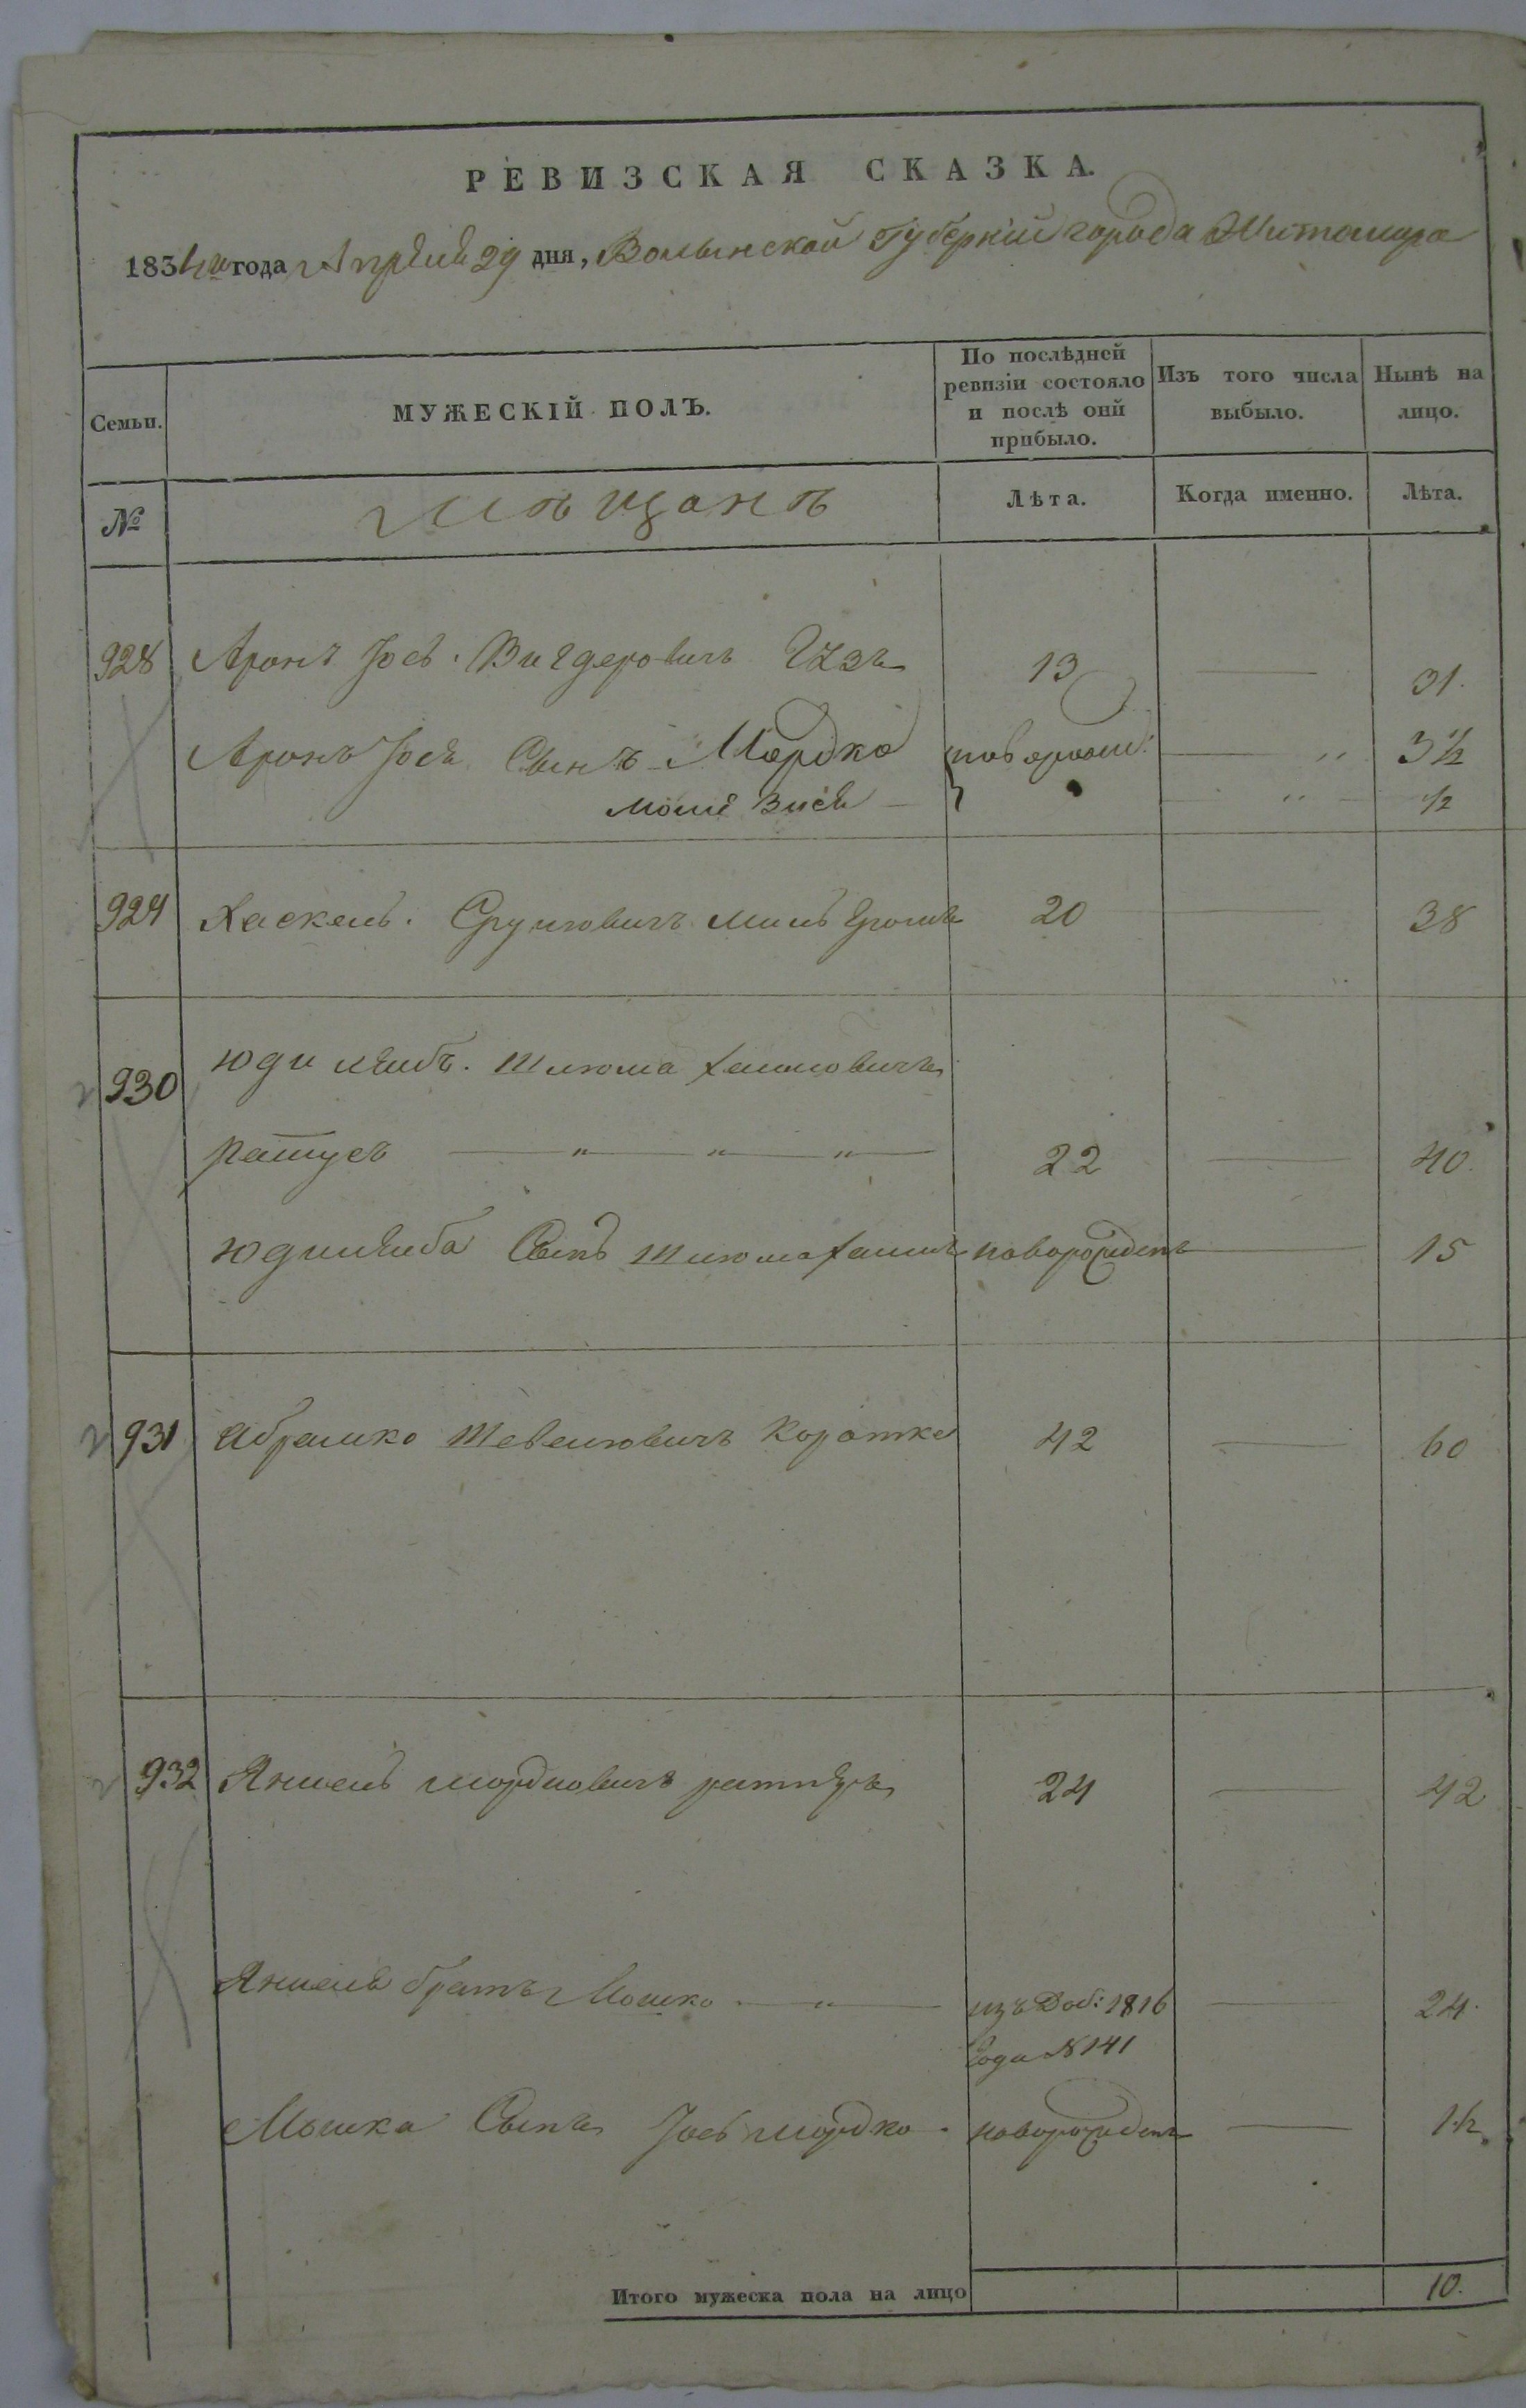 РЕВИЗСКАЯ СКАЗКА.
1834го года Апреля 29 дня, Волынской Губернии города Житомира
Семьи. МУЖЕСКІЙ ПОЛЪ. По послѣдней ревизіи состояло и послѣ оній прибыло. Изъ того числа выбыло. Нынѣ на лицо.
№ Мѣщанъ Лѣта. Когда именно. Лѣта.
928 Аронъ Іось. Вигдеровичъ 13 31.
Аронъ Іося Сынъ Мордко новорожд: " 3½
Мошѣ Зися " ½
929 Хаскель. Сруловичъ 20 38
930 Юдилейбъ. Шлома Хаимовичъ
Ратусъ " " " 22 40.
Юдилейба Сынъ Шлома Хаимъ новорожденъ 15
931 Абрамко Шевелювичъ Коротке 42 60
932 Яншель Мордковичъ ратнеръ 24 42
Яншеля братъ Мошко " изъ Доб: 1816 24.
года №141
Мошка Сынъ Іось Мордко. новорожденъ 1½
Итого мужеска пола на лицо 10.